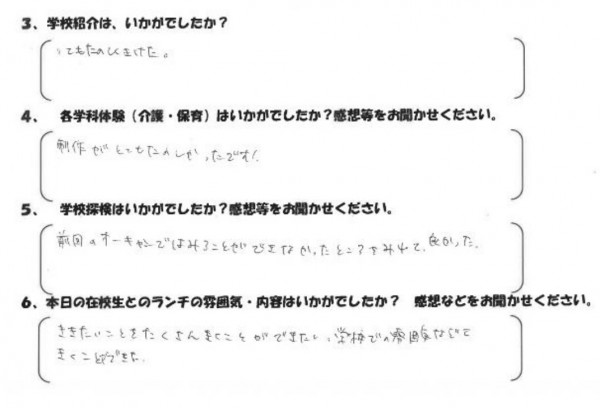 3、学校紹介は、いかがでしたか？
とてもたのしくきけた。
4、 各学科体験（介護・保育）はいかがでしたか？感想等をお聞かせください。
制作がとてもたのしかったです！
5、 学校探検はいかがでしたか？感想等をお聞かせください。
前回のオーキャンではみることができなかったところをみれて、良かった。
6、本日の在校生とのランチの雰囲気・内容はいかがでしたか？ 感想などをお聞かせください。
ききたいことをたくさんきくことができたし、学校での雰囲気なども
きくことができた。